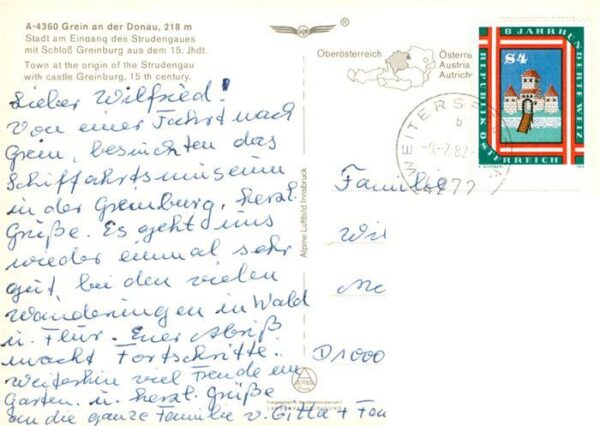 A-4360 Grein an der Donau, 218 m
Stadt am Eingang des Strudengaues
mit Schloß Greinburg aus dem 15. Jhdt.
Town at the origin of the Strudengau
with castle Greinburg, 15 th century.
Lieber Wilfried!
Von einer Fahrt nach
Grein, besuchten das
Schiffahrtsmuseum
in der Greinburg, herzl.
Grüße. Es geht uns
wieder einmal sehr
gut, bei den vielen
Wanderungen in Wald
u. Flur. Euer Abriß
macht Fortschritte.
Weiterhin viel Freude im
Garten. u. herzl. Grüße
an die ganze Familie v. Gitta + Fam
Alpine Luftbild Innsbruck
Oberösterreich
Österre
Austria
Autrich
8 JAHRHUNDERTE WEIZ
S4
REPUBLIK ÖSTERREICH
WEITERS
b
-9.-7.82
Familie
Wil
D 1000